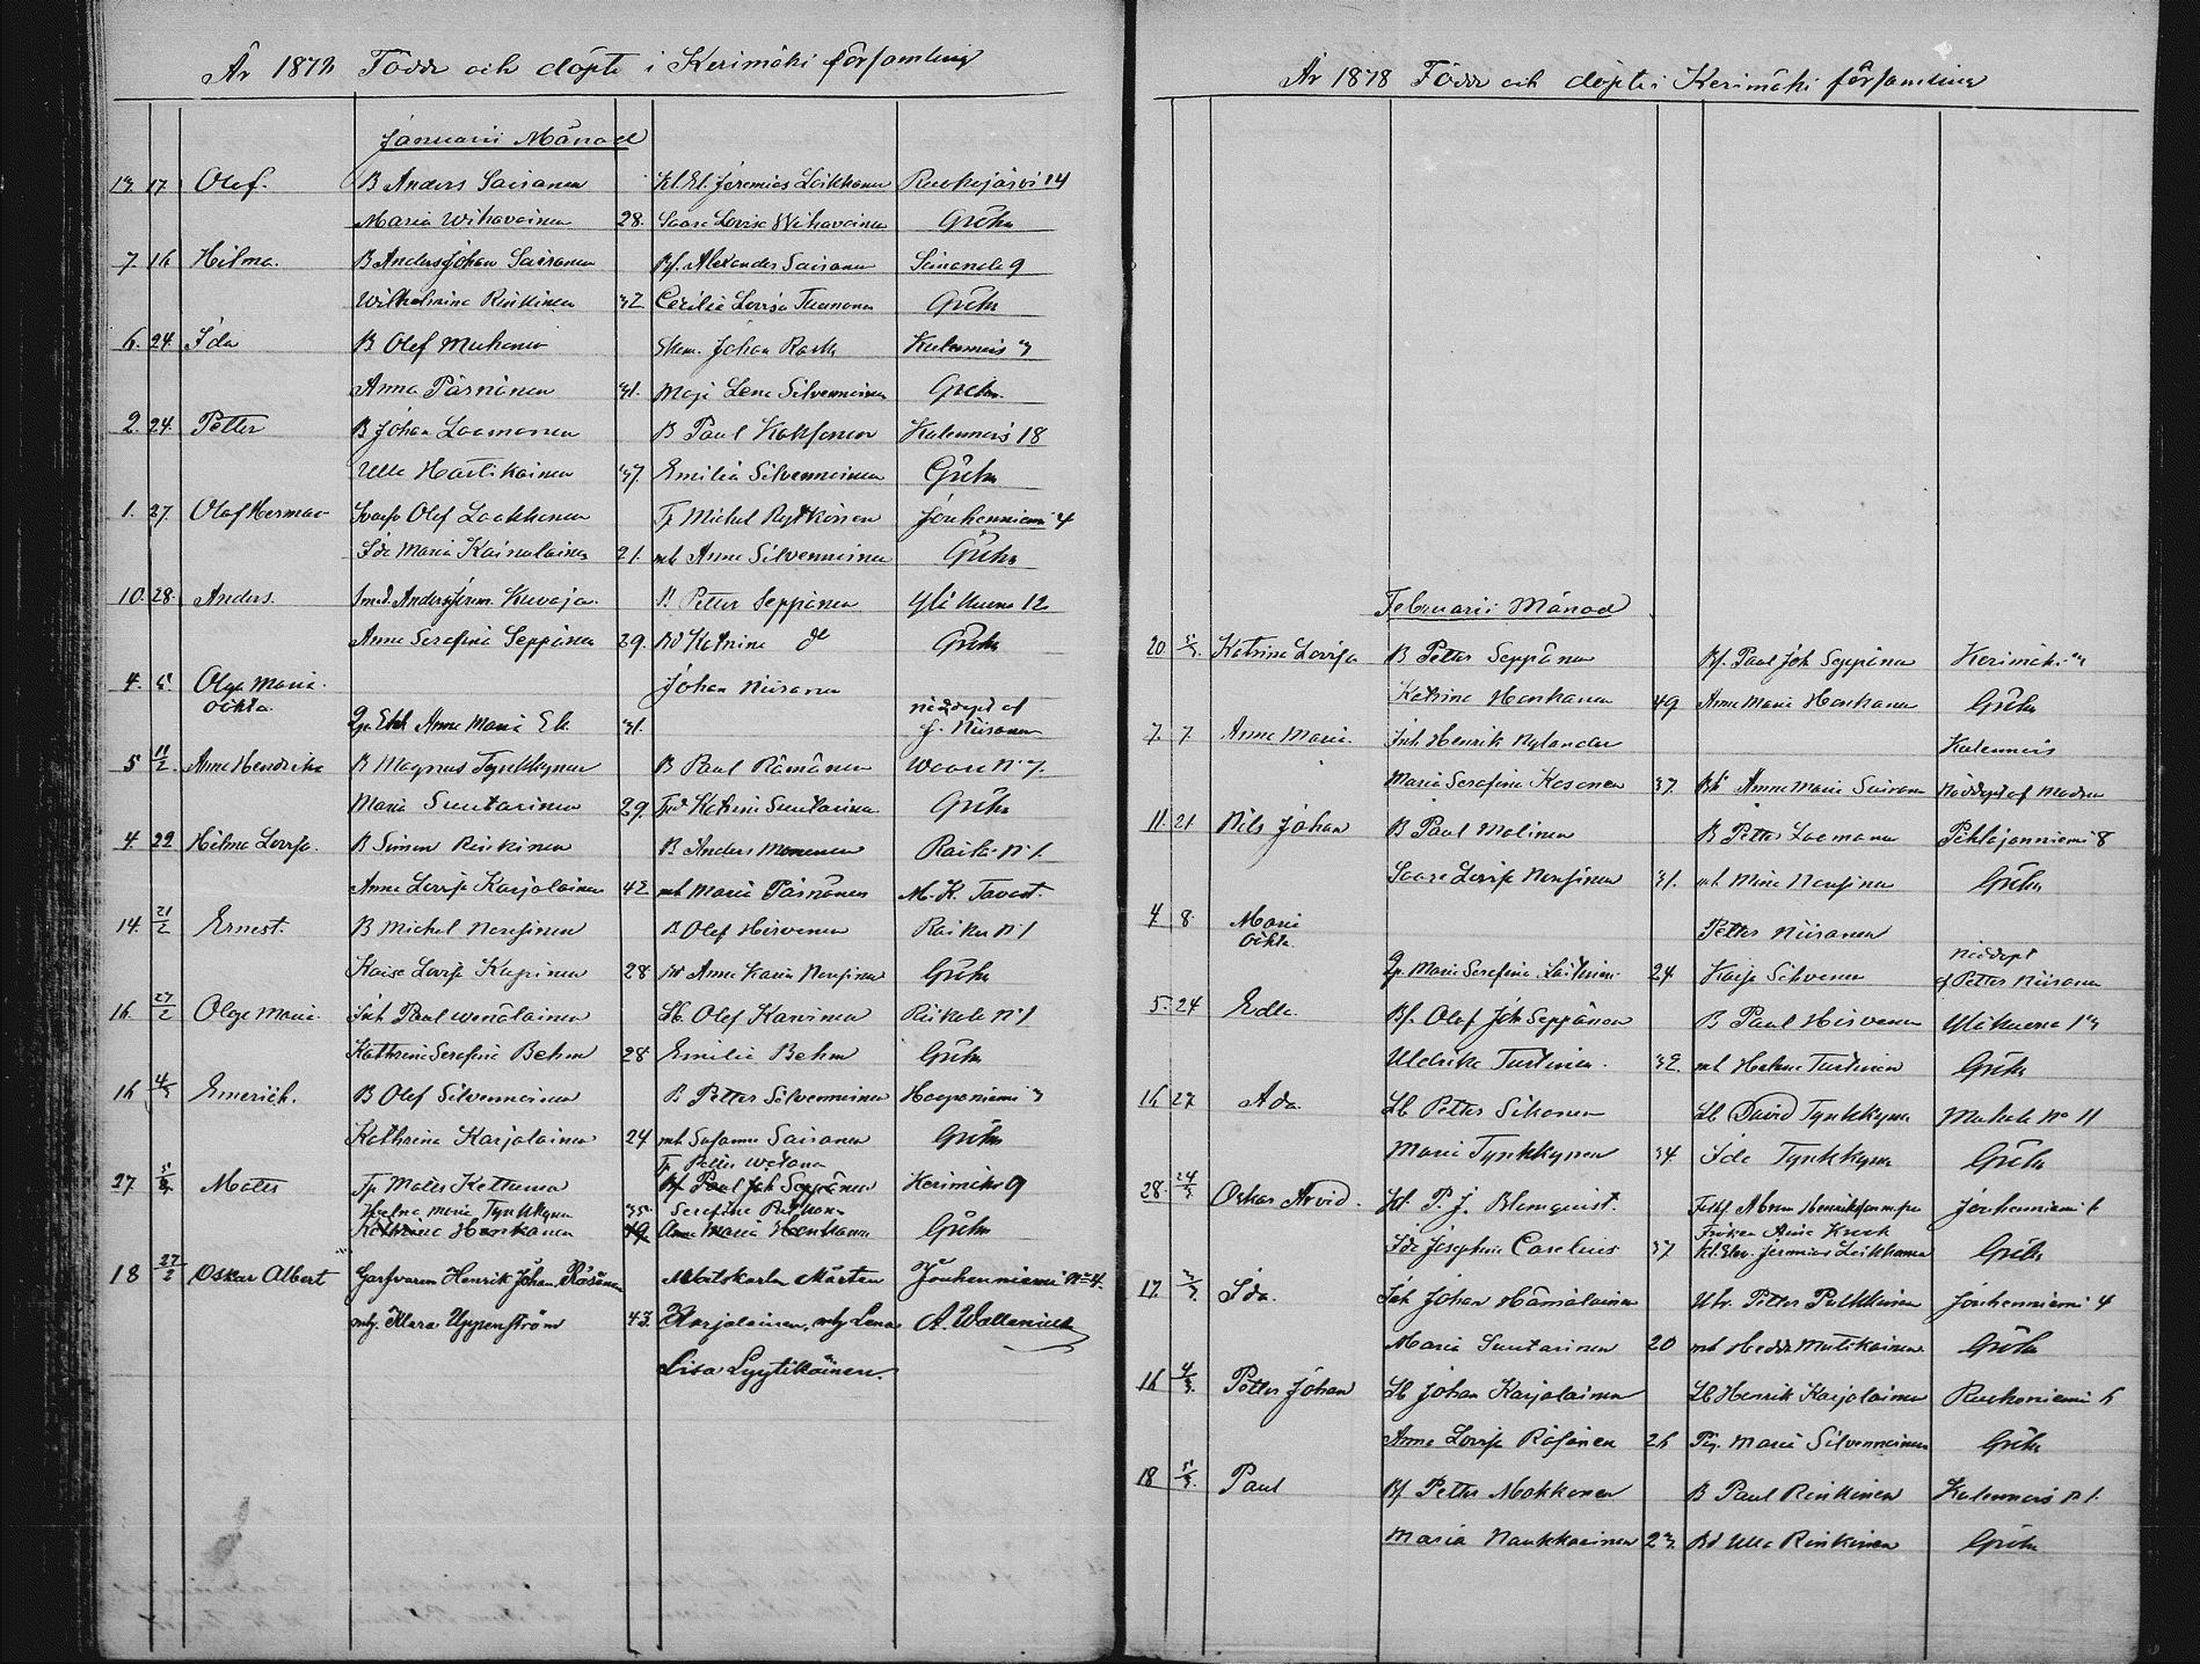 År 1878 Födde och döpte i Kerimäki församling
Januarii Månad
13. 17. Olof. B Anders Sairanen Kl. El. Jeremias Leikkanen Ruokojärvi 14
Maria Wihavainen 28. Saara Lovisa Wihavainen Gröhn
7. 16 Hilma. B Anders Johan Sairanen Bf. Alexander Sairanen 9
Wilhelmina Rinkinen 32 Cecilia Lovisa Gröhn
6. 24. Ida B Olef Muhonen Johan Rask Kulennois 3
Anna Pärnänen 31. Maja Lena Silvennoinen Gröhn
2. 24. Petter B Johan Laamanen B Paul Kokkonen Kulennois 18
Ulla Hartikainen 37. Emilia Silvennoinen Gröhn
1. 27. Olof Herman Olef Laukkanen Tp Michel Rytkönen Jouhenniemi 4
Ida Maria Kainulainen 21. mh Anna Silvennoinen Gröhn
10. 28. Anders. Smed. Anders Jerem. Kuvaja B Petter Seppänen Ylä Kuona 12
Anna Serafina Seppänen 29. Bd Katrina d Gröhn
4. 5. Olga Maria. Johan Niiranen
oäkta. Anna Maria Ek 31. nöddöpt af
J. Niiranen
5 11/2. Anna Hendrika B Magnus Tynkkynen B Paul Rämänen Waara N 7.
Maria Suutarinen 29. Katrina Suutarinen Gröhn
4. 22 Hilma Lovisa. B Simon Rinkinen B Anders Raiku N 1.
Anna Lovisa Karjalainen 42 mh Maria Pärnänen M. K. Tavast.
14. 21/2 Ernest. B Michel Nousiainen B Olef Hirvonen Raiku N 1
Kaisa Lovisa Kupinen 28 Anna Karin Nousiainen Gröhn
16. 27/2 Olga Maria. Inh Paul Wenäläinen Lb. Olef Karvinen Riikola N 1
Kathrina Serafina Behm 28 Emilia Behm Gröhn
16 4/3 Emerich. B Olef Silvennoinen B Petter Silvennoinen Haapaniemi 3
Kathrina Karjalainen 24 mh Susanna Sairanen Gröhn
Tp Petter
27. 5/3 Mats Tp Mats Kettunen Bf. Paul Joh Seppänen Kerimäki 9
Helena Maria Tynkkynen 35. Serafina
Kathrina Henkanen 49 Anna Maria Henkanen Gröhn
18 27/2 Oskar Albert Garfvaren Henrik Johan Räsänen Målskarlen Mårten Jouhenniemi No 4.
mh. Klara Uppenström 43. Karjalainen, mh Lena A. Wallenius
Lisa Lyytikäinen.
År 1878 Födde och döpte i Kerimäki församling
Februarii Månad
20 5/3. Katrina Lovisa B Petter Seppänen Bf. Paul Joh Seppänen Kerimäki 3
Katrina Henkanen 49 Anna Maria Henkanen Gröhn
7. 7. Anna Maria. Inh Henrik Nylander Kulennois
Maria Serafina Kosonen 37. Anna Maria Sairanen Nöddöpt af Modren
11. 21. Nils Johan B Paul Malinen B Petter Laamanen Pihlajaniemi 8
Saara Lovisa Nousiainen 31. mh Mina Nousiainen Gröhn
4 8. Maria Petter Niiranen
oäkta nöddöpt
Maria Serafina 24 Kaisa Silvonen af Petter Niiranen
5. 24 Edla. Bf. Olof Joh Seppänen B Paul Hirvonen Ylä Kuona 13
Uldrika Turtinen. 32. mh Helena Turtinen Gröhn
16 27 Ada. Lb Petter Sihvonen Lb David Tynkkynen Makkola No 11
Maria Tynkkynen 34. Ida Tynkkynen Gröhn
28. 24/3 Oskar Arvid. P. J. Blomquist. Abram Henriksson Jouhenniemi 6
Fröken Aina Krook
Ida Josephina Carelius 37 Kl. Elev. Jeremias Leikkanen Gröhn
17. 3/3. Ida. Inh Johan Hämäläinen Petter Pulkkinen Jouhenniemi 4
Maria Suutarinen 20 mh Hedda Mutikainen Gröhn
16 4/3. Petter Johan Lb Johan Karjalainen Lb Henrik Karjalainen Ruokoniemi 6
Anna Lovisa Räsänen 26 Pig. Maria Silvennoinen Gröhn
18 5/3. Paul Bf Petter Makkonen B Paul Rinkinen Kulennois N 1.
Maria Naukkarinen 23. Bd Ulla Rinkinen Gröhn